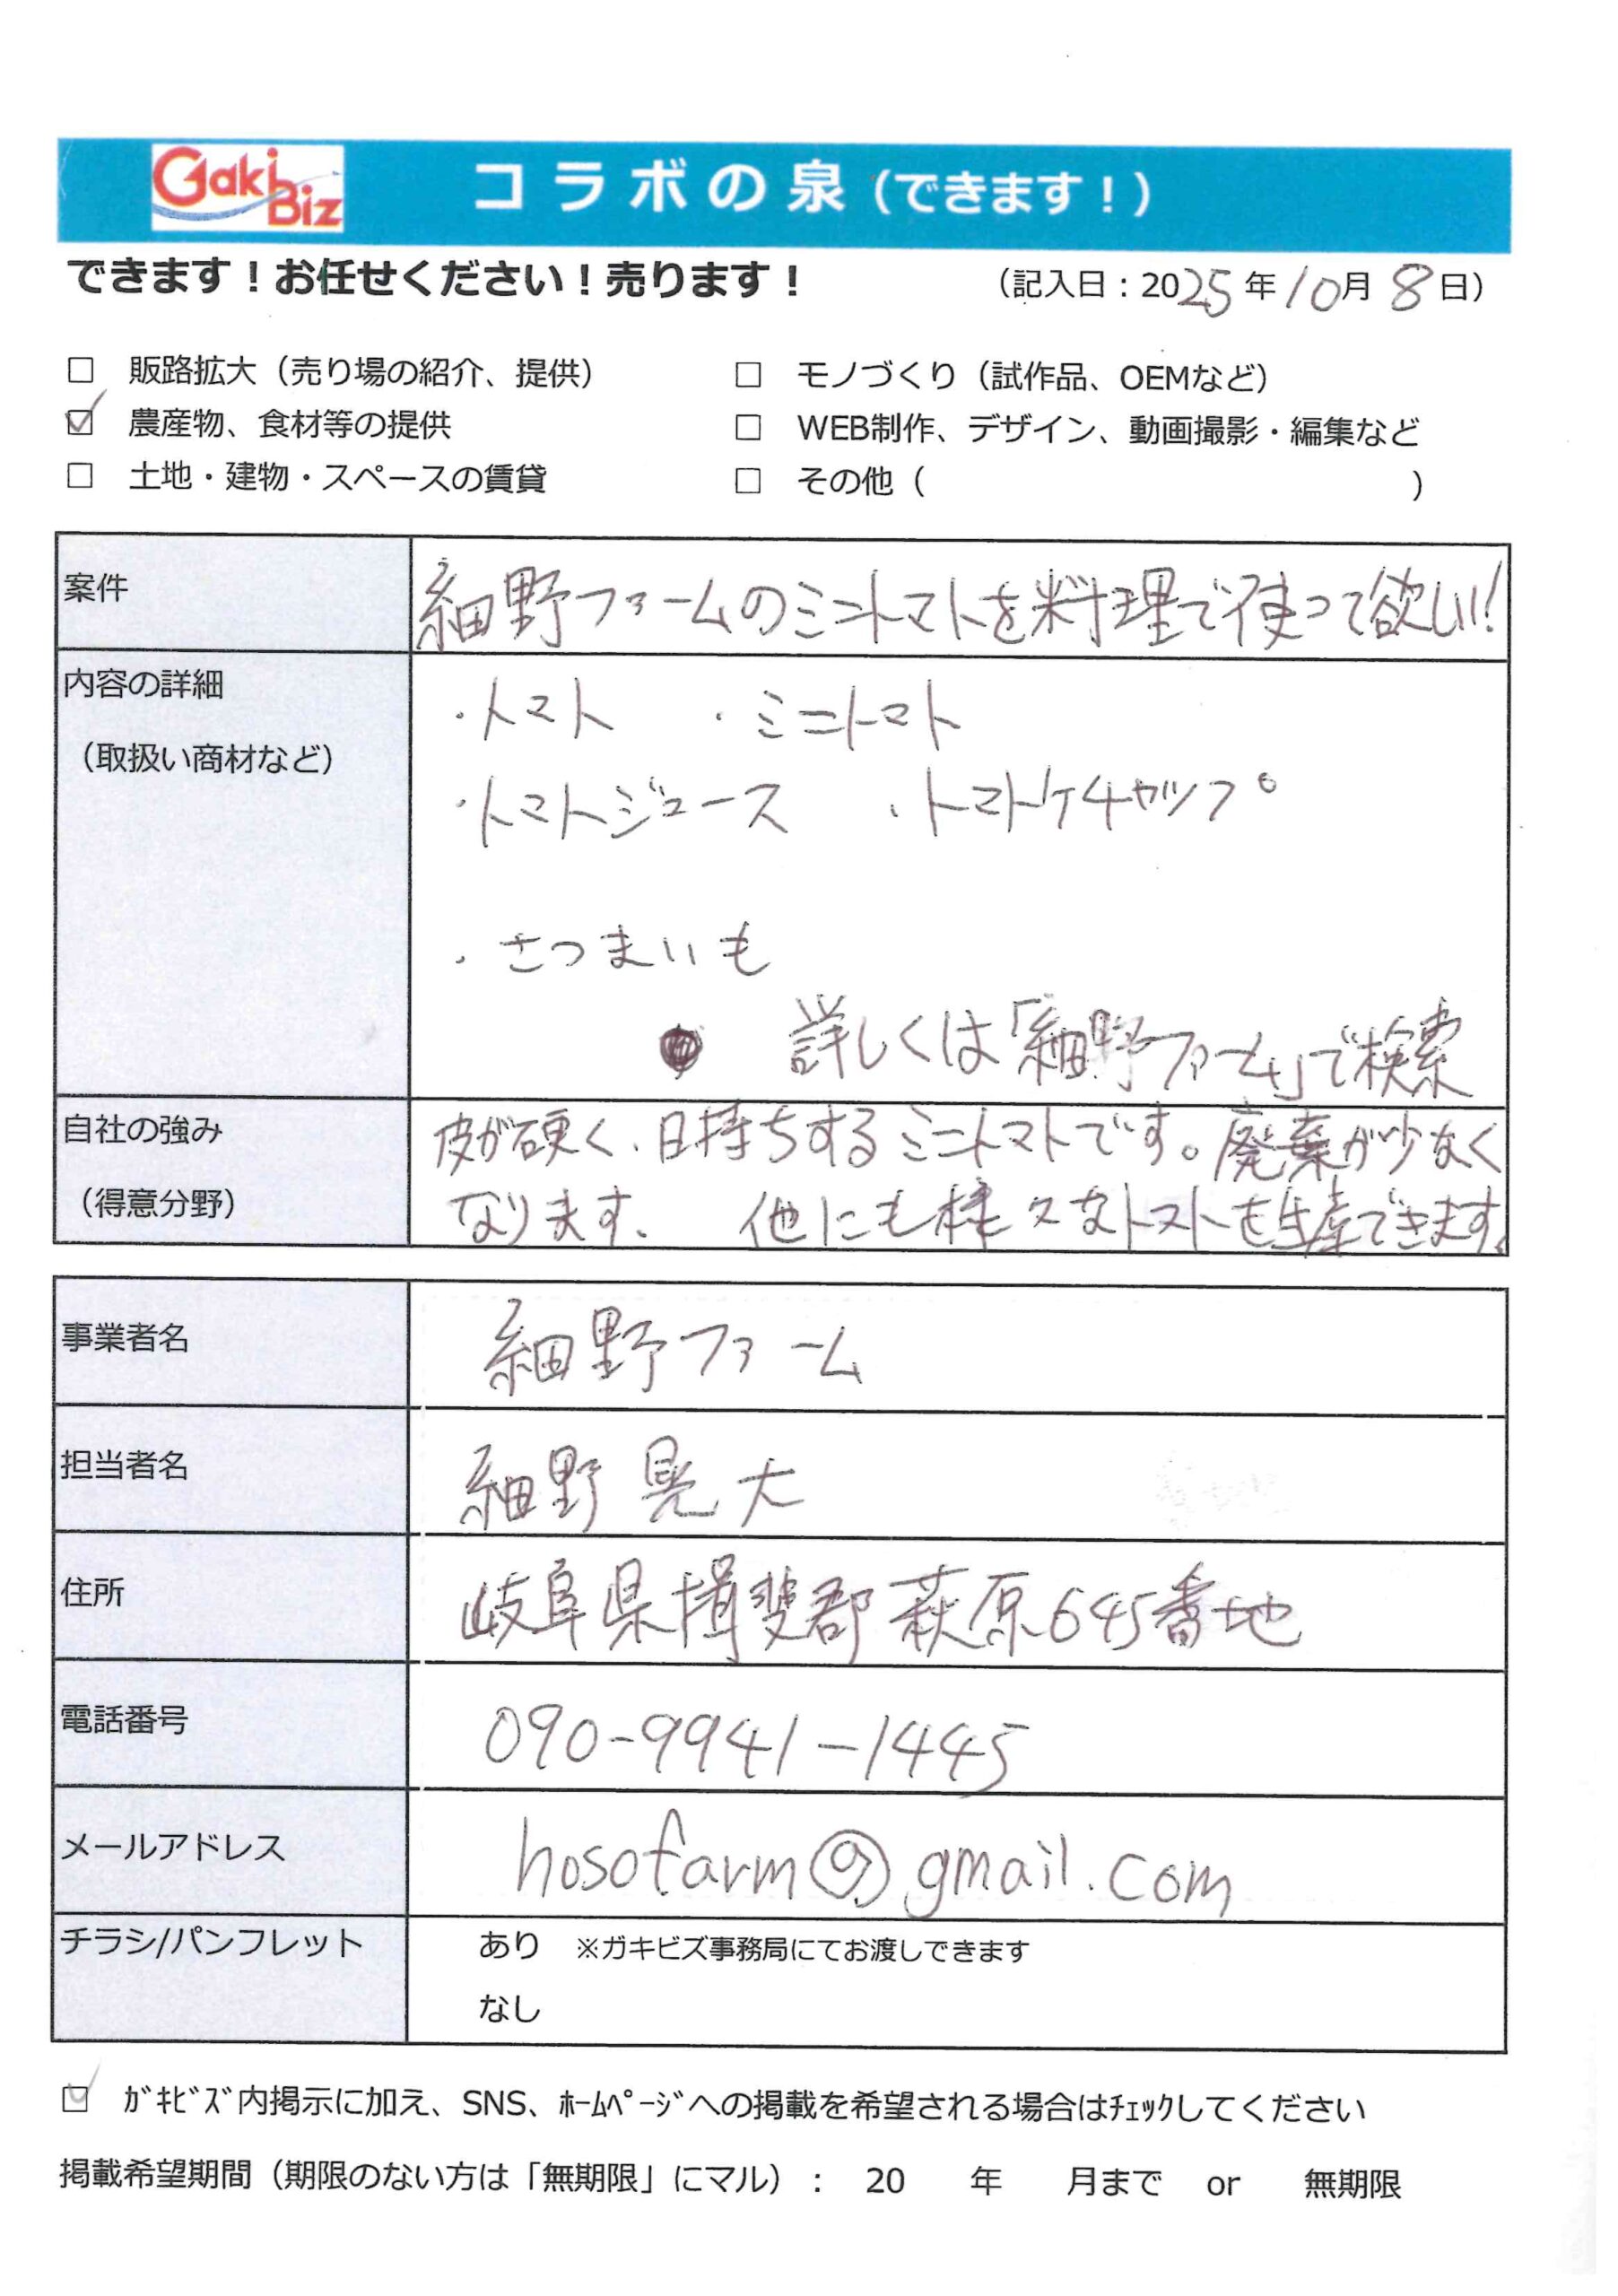 Gaki Biz
コラボの泉（できます！）
できます！お任せください！売ります！ （記入日：2025年10月8日）
□ 販路拡大（売り場の紹介、提供） □ モノづくり（試作品、OEMなど）
☑ 農産物、食材等の提供 □ WEB制作、デザイン、動画撮影・編集など
□ 土地・建物・スペースの賃貸 □ その他（ ）
案件 細野ファームのミニトマトを料理で使って欲しい！
内容の詳細
（取扱い商材など）
・トマト ・ミニトマト
・トマトジュース ・トマトケチャップ
・さつまいも
詳しくは「細野ファーム」で検索
自社の強み
（得意分野）
皮が硬く、日持ちするミニトマトです。廃棄が少なく
なります、 他にも様々なトマトを生産できます。
事業者名 細野ファーム
担当者名 細野 晃大
住所 岐阜県揖斐郡萩原645番地
電話番号 090-9941-1445
メールアドレス hosofarm@gmail.com
チラシ/パンフレット あり ※ガキビズ事務局にてお渡しできます
なし
☑ ｶﾞｷﾋﾞｽﾞ内掲示に加え、SNS、ﾎｰﾑﾍﾟｰｼﾞへの掲載を希望される場合はﾁｪｯｸしてください
掲載希望期間（期限のない方は「無期限」にマル）： 20 年 月まで or 無期限